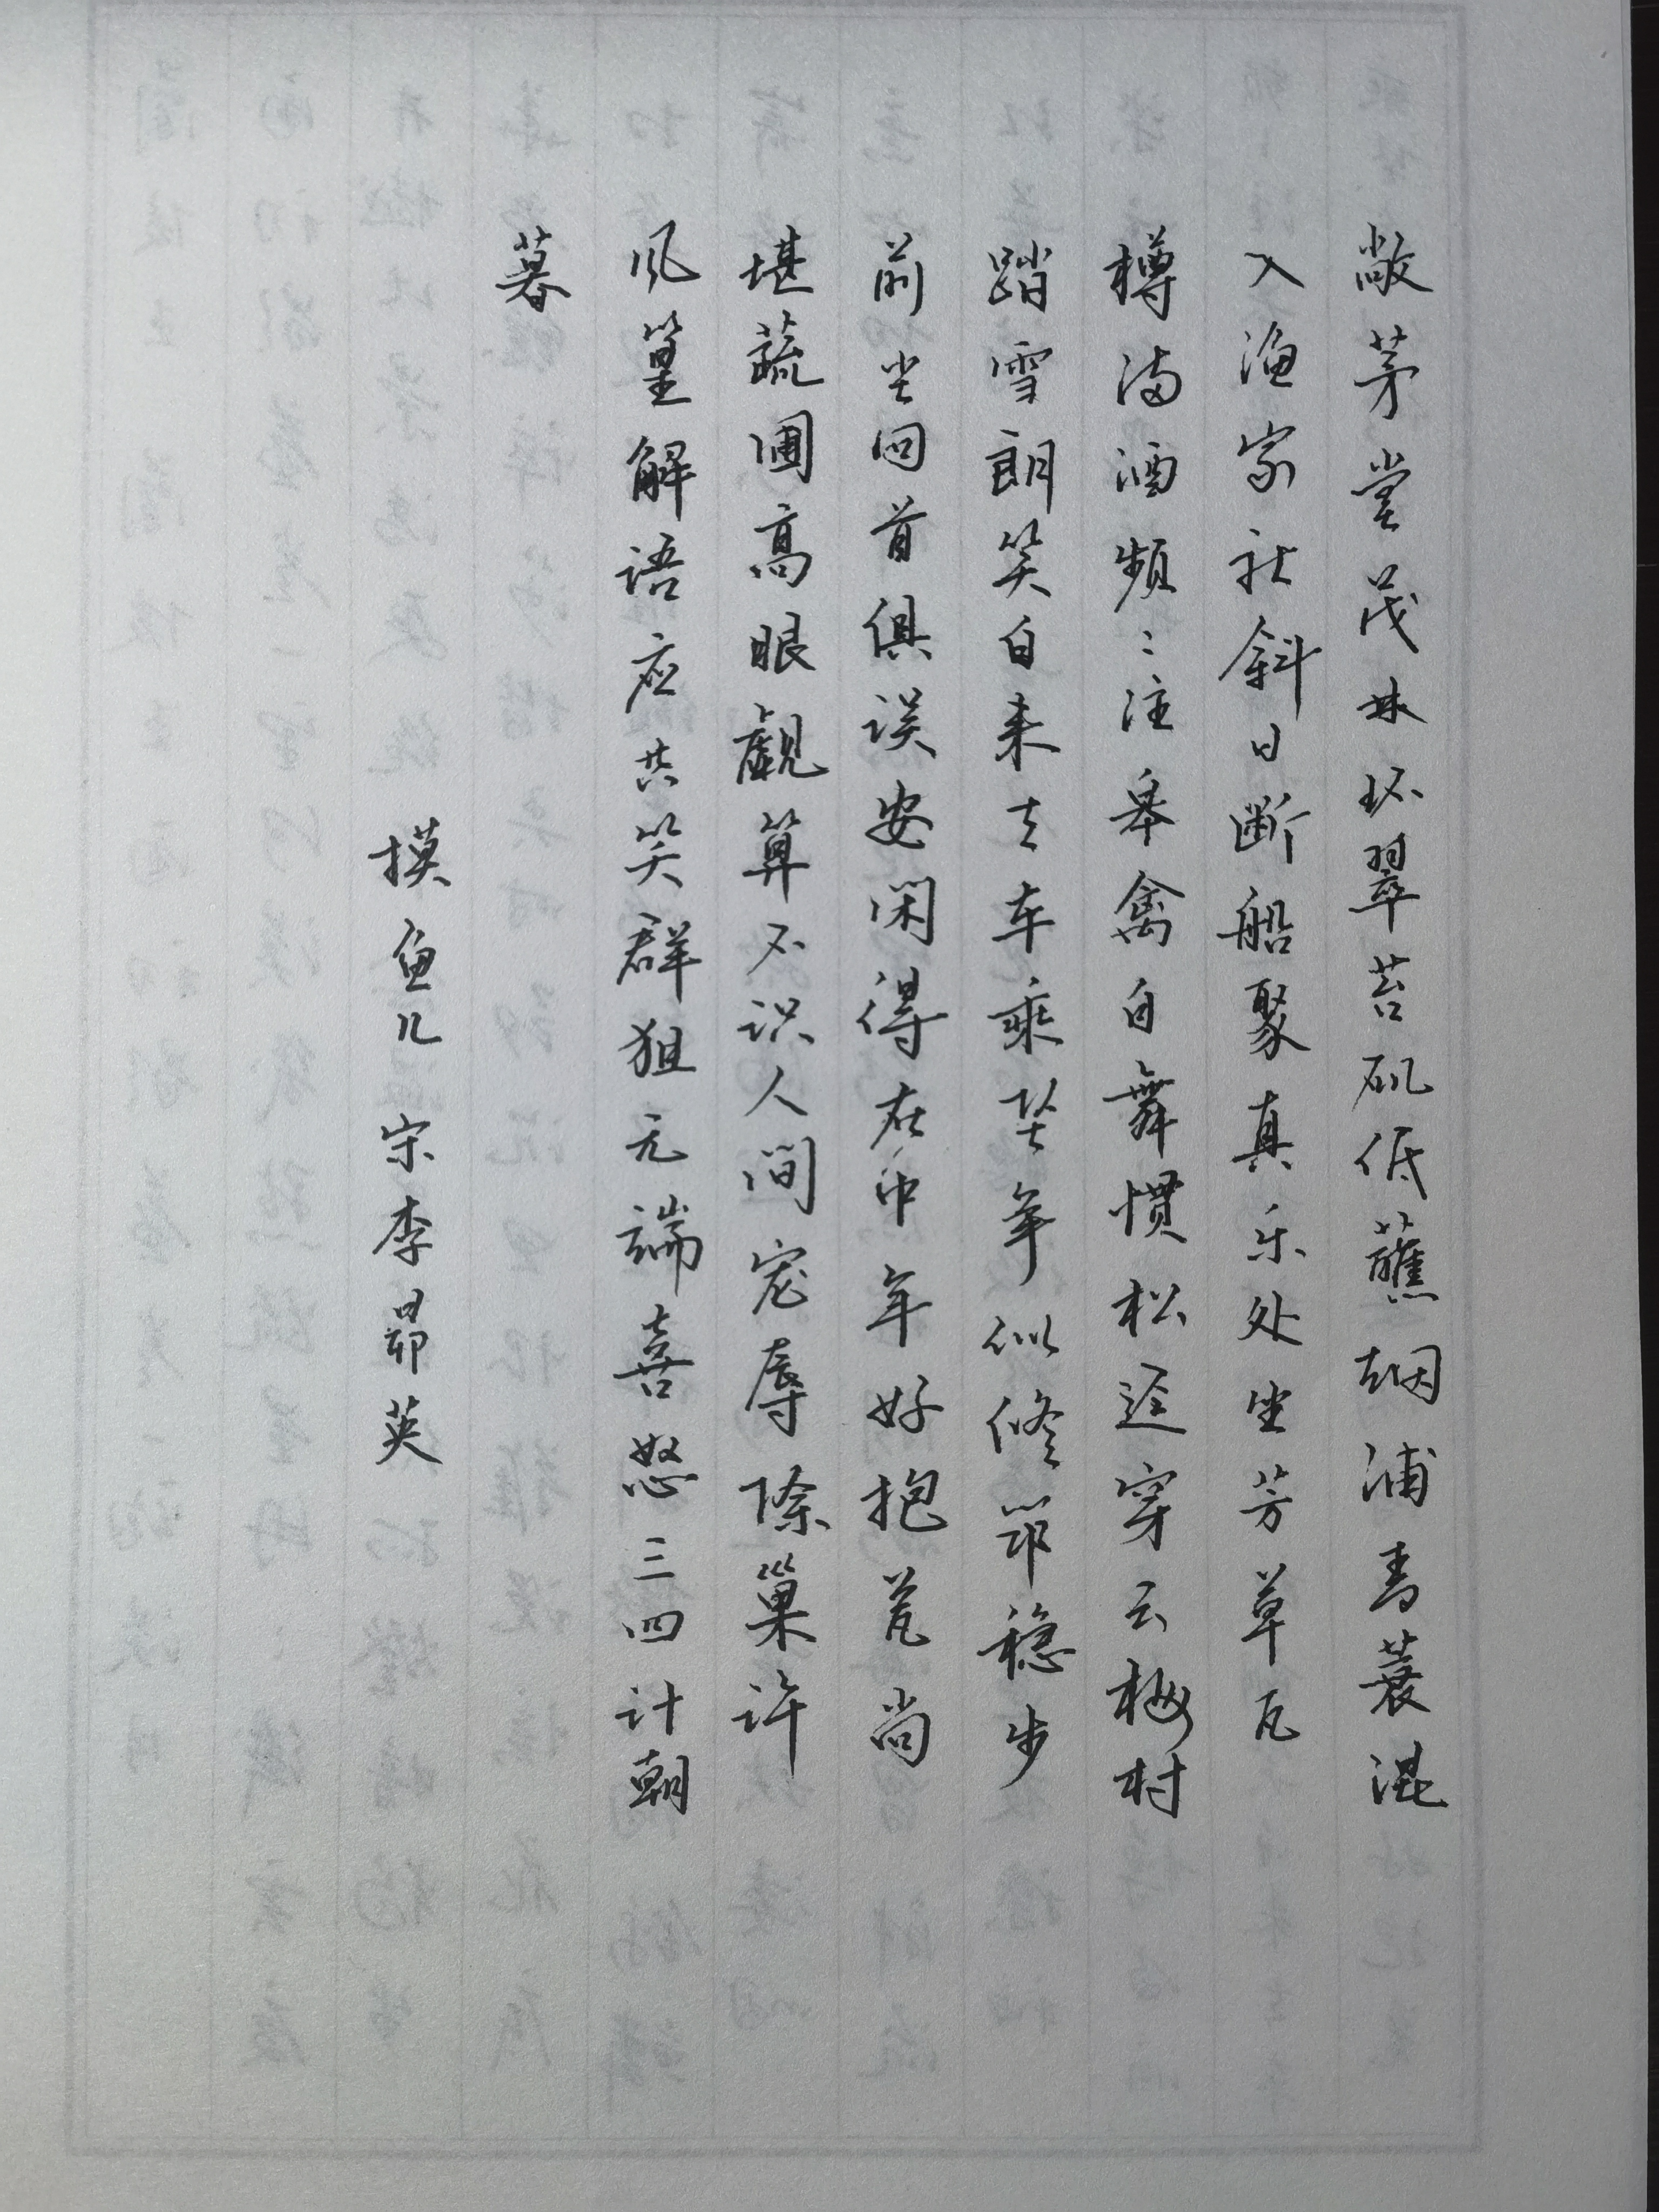 敞茅堂茂林环翠苔矶低蘸烟浦青蓑混
入渔家社斜日断船聚真乐处坐芳草瓦
樽满酒频〻注举禽自舞惯松迳穿云梅村
踏雪朗笑自来去车乘坠争似修筇稳步
前尘回首俱误安闲得在中年好抱瓮尚
堪蔬圃高眼觑算不识人间宠辱除巢许
风篁解语应共笑群狙无端喜怒三四计朝
暮
摸鱼儿 宋李昴英